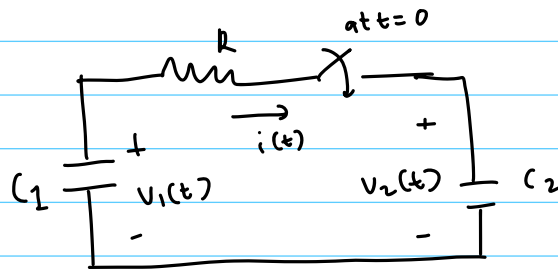 at t = 0
R
i(t)
+
+
C1
v1(t)
v2(t)
C2
-
-